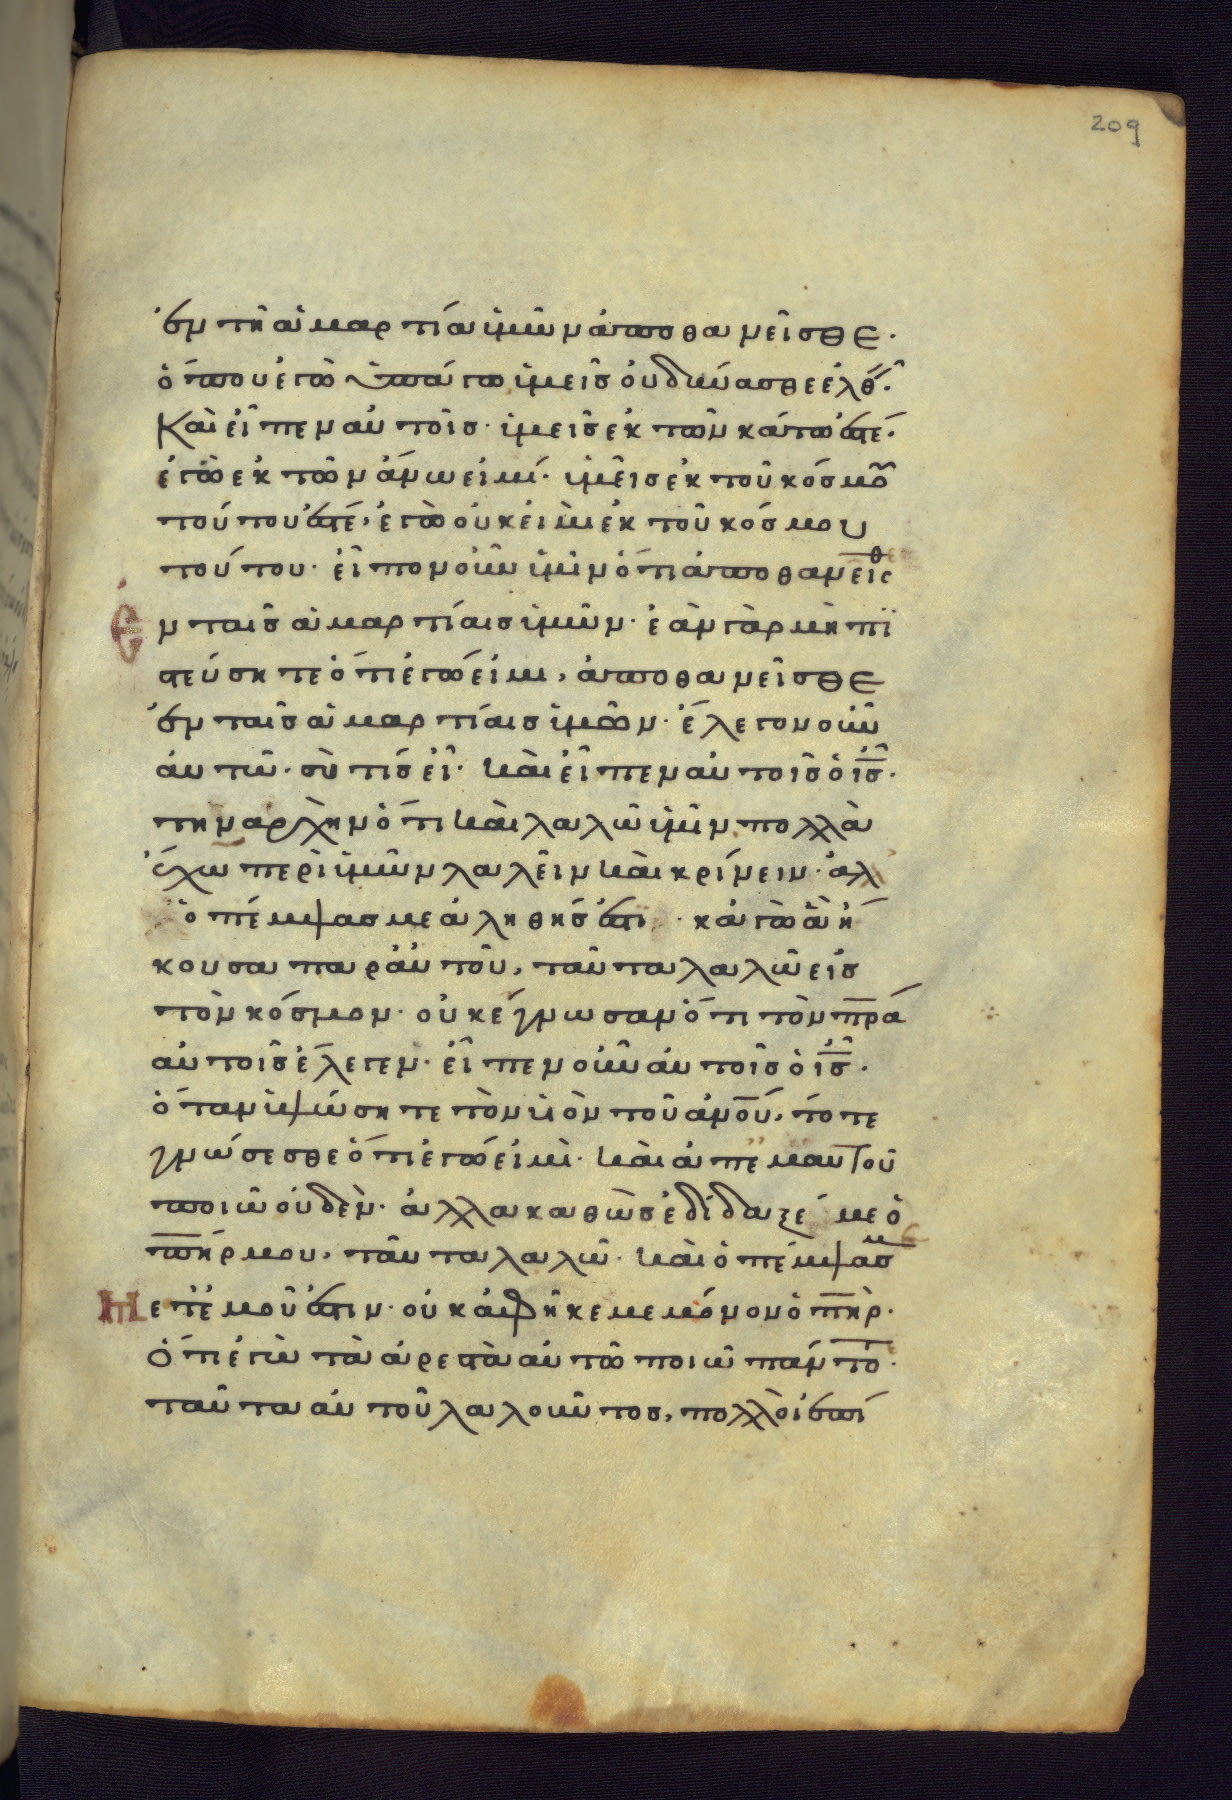 209
ἐν τῇ ἁμαρτίᾳ ὑμῶν ἀποθανεῖσθε·
ὅπου ἐγὼ ὑπάγω ὑμεῖς οὐ δύνασθε ἐλθ῀·
Καὶ εἶπεν αὐτοῖς· ὑμεῖς ἐκ τῶν κάτω ἐστέ·
ἐγὼ ἐκ τῶν ἄνω εἰμί· ὑμεῖς ἐκ τοῦ κόσμου
τούτου ἐστέ, ἐγὼ οὐκ εἰμὶ ἐκ τοῦ κόσμου
τούτου· εἶπον οὖν ὑμῖν ὅτι ἀποθανεῖσθε
ἐν ταῖς ἁμαρτίαις ὑμῶν· ἐὰν γὰρ μὴ πι
στεύσητε ὅτι ἐγώ εἰμι, ἀποθανεῖσθε
ἐν ταῖς ἁμαρτίαις ὑμῶν· ἔλεγον οὖν
αὐτῷ· σὺ τίς εἶ· καὶ εἶπεν αὐτοῖς ὁ ις·
τὴν ἀρχὴν ὅτι καὶ λαλῶ ὑμῖν πολλὰ
ἔχω περὶ ὑμῶν λαλεῖν καὶ κρίνειν· ἀλλ
ὁ πέμψας με ἀληθής ἐστι· κἀγὼ ἃ ἤ
κουσα παρ αὐτοῦ, ταῦτα λαλῶ εἰς
τὸν κόσμον· οὐκ ἔγνωσαν ὅτι τὸν πρα
αὐτοῖς ἔλεγεν· εἶπεν οὖν αὐτοῖς ὁ ις·
ὅταν ὑψώσητε τὸν υἱὸν τοῦ ανου, τότε
γνώσεσθε ὅτι ἐγώ εἰμὶ· καὶ ἀπ ἐμαυτοῦ
ποιῶ οὐδὲν· ἀλλὰ καθὼς ἐδίδαξέ με ὁ
πηρ μου, ταῦτα λαλῶ· καὶ ὁ πέμψας
με μετ ἐμοῦ ἐστιν· οὐκ ἀφῆκε με μόνον ὁ πηρ·
Ὅτι ἐγὼ τὰ ἀρεστὰ αὐτῷ ποιῶ πάντο·
ταῦτα αὐτοῦ λαλοῦντος, πολλοὶ ἐπί